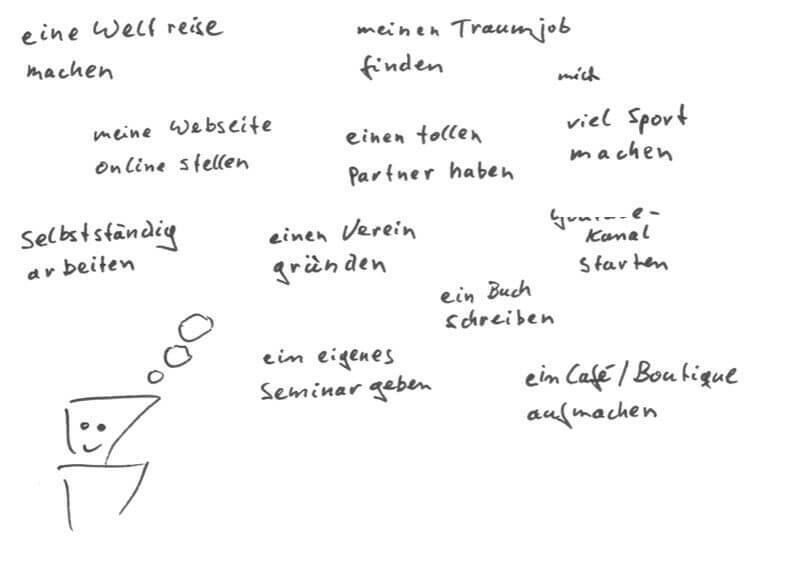 eine Weltreise
machen
meinen Traumjob
finden
mich
meine Webseite
online stellen
einen tollen
Partner haben
viel Sport
machen
Selbstständig
arbeiten
einen Verein
gründen
Kanal
starten
ein Buch
schreiben
ein eigenes
Seminar geben
ein Café/Boutique
aufmachen